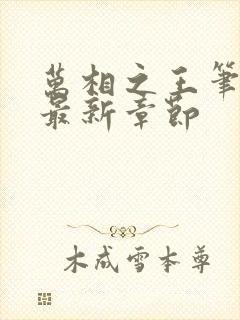 萬相之王筆
最新章節
木成雪本尊